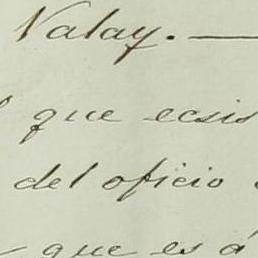 Nalay. —
que ecsis
del oficio
que es á